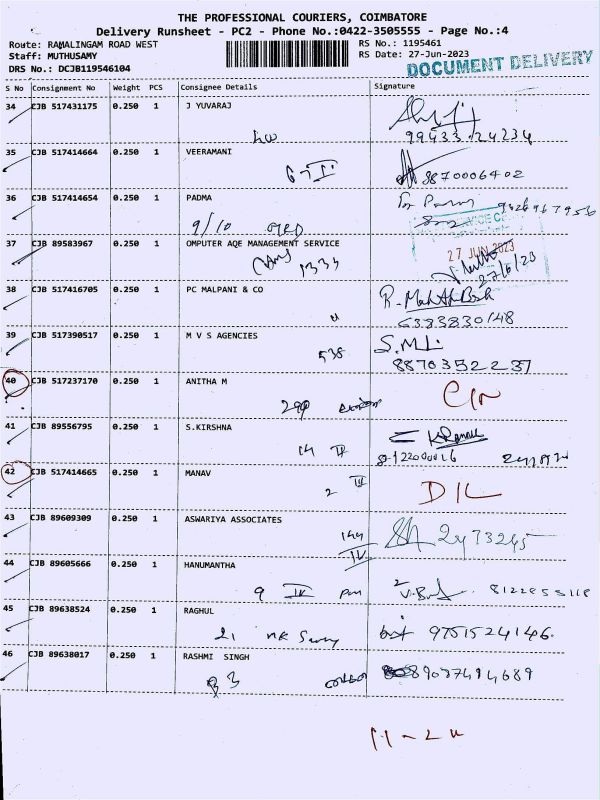 THE PROFESSIONAL COURIERS, COIMBATORE
Delivery Runsheet - PC2 - Phone No.:0422-3505555 - Page No.:4
Route: RAMALINGAM ROAD WEST RS No.: 1195461
Staff: MUTHUSAMY RS Date: 27-Jun-2023
DRS No.: DCJB119546104 DOCUMENT DELIVERY
S No Consignment No Weight PCS Consignee Details Signature
34 CJB 517431175 0.250 1 J YUVARAJ
99433 24234
35 CJB 517414664 0.250 1 VEERAMANI
8870006402
36 CJB 517414654 0.250 1 PADMA
9/10
37 CJB 89583967 0.250 1 OMPUTER AQE MANAGEMENT SERVICE
27 JUN 2023
1333 27/6/23
38 CJB 517416705 0.250 1 PC MALPANI & CO
6383830148
39 CJB 517390517 0.250 1 M V S AGENCIES S.M.L.
538 8870352237
40 CJB 517237170 0.250 1 ANITHA M
290
41 CJB 89556795 0.250 1 S.KIRSHNA
14 IV
42 CJB 517414665 0.250 1 MANAV
2 IV D I L
43 CJB 89609309 0.250 1 ASWARIYA ASSOCIATES
144 2473245
IV
44 CJB 89605666 0.250 1 HANUMANTHA
9 IV
45 CJB 89638524 0.250 1 RAGHUL
21 9751524146
46 CJB 89638017 0.250 1 RASHMI SINGH
B 3 8907494689
11-24